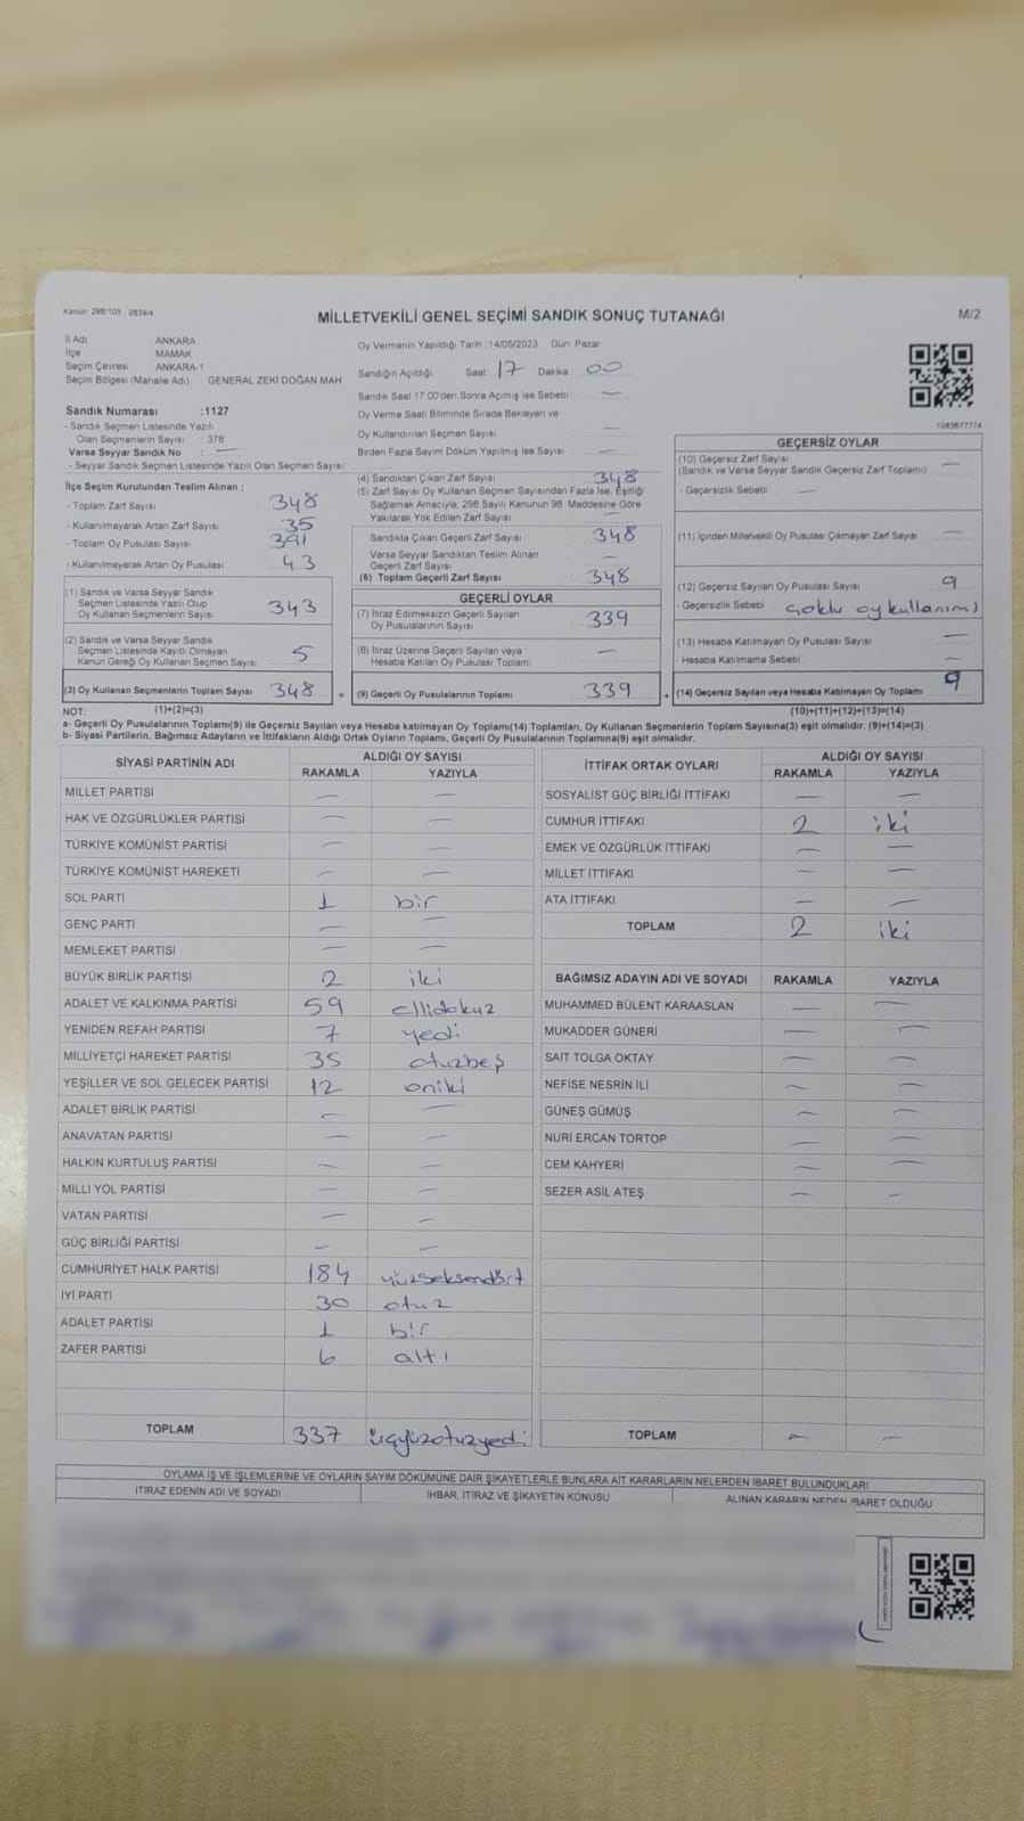 Kanun: 298/105 - 2839/4
MİLLETVEKİLİ GENEL SEÇİMİ SANDIK SONUÇ TUTANAĞI
M/2
İl Adı ANKARA
İlçe MAMAK
Seçim Çevresi ANKARA-1
Seçim Bölgesi (Mahalle Adı) GENERAL ZEKİ DOĞAN MAH
Sandık Numarası :1127
- Sandık Seçmen Listesinde Yazılı
Olan Seçmenlerin Sayısı : 378
Varsa Seyyar Sandık No : —
- Seyyar Sandık Seçmen Listesinde Yazılı Olan Seçmen Sayısı
İlçe Seçim Kurulundan Teslim Alınan :
- Toplam Zarf Sayısı 348
- Kullanılmayarak Artan Zarf Sayısı 35
- Toplam Oy Pusulası Sayısı 391
- Kullanılmayarak Artan Oy Pusulası 43
(1) Sandık ve Varsa Seyyar Sandık
Seçmen Listesinde Yazılı Olup
Oy Kullanan Seçmenlerin Sayısı 343
(2) Sandık ve Varsa Seyyar Sandık
Seçmen Listesinde Kayıtlı Olmayan
Kanun Gereği Oy Kullanan Seçmen Sayısı 5
(3) Oy Kullanan Seçmenlerin Toplam Sayısı 348
Oy Vermenin Yapıldığı Tarih :14/05/2023 Gün: Pazar
Sandığın Açıldığı Saat 17 Dakika 00
Sandık Saat 17:00'den Sonra Açılmış İse Sebebi —
Oy Verme Saati Bitiminde Sırada Bekleyen ve
Oy Kullandırılan Seçmen Sayısı —
Birden Fazla Sayım Döküm Yapılmış İse Sayısı —
(4) Sandıktan Çıkan Zarf Sayısı 348
(5) Zarf Sayısı Oy Kullanan Seçmen Sayısından Fazla İse, Eşitliği
Sağlamak Amacıyla, 298 Sayılı Kanunun 98. Maddesine Göre
Yakılarak Yok Edilen Zarf Sayısı —
Sandıkta Çıkan Geçerli Zarf Sayısı 348
Varsa Seyyar Sandıktan Teslim Alınan
Geçerli Zarf Sayısı —
(6) Toplam Geçerli Zarf Sayısı 348
GEÇERLİ OYLAR
(7) İtiraz Edilmeksizin Geçerli Sayılan
Oy Pusulalarının Sayısı 339
(8) İtiraz Üzerine Geçerli Sayılan veya
Hesaba Katılan Oy Pusulası Toplamı —
(9) Geçerli Oy Pusulalarının Toplamı 339
GEÇERSİZ OYLAR
(10) Geçersiz Zarf Sayısı —
(Sandık ve Varsa Seyyar Sandık Geçersiz Zarf Toplamı)
- Geçersizlik Sebebi —
(11) İçinden Milletvekili Oy Pusulası Çıkmayan Zarf Sayısı —
(12) Geçersiz Sayılan Oy Pusulası Sayısı 9
- Geçersizlik Sebebi çoklu oy kullanımı
(13) Hesaba Katılmayan Oy Pusulası Sayısı —
- Hesaba Katılmama Sebebi —
(14) Geçersiz Sayılan veya Hesaba Katılmayan Oy Toplamı 9
NOT: (1)+(2)=(3) (10)+(11)+(12)+(13)=(14)
a- Geçerli Oy Pusulalarının Toplamı(9) ile Geçersiz Sayılan veya Hesaba katılmayan Oy Toplamı(14) Toplamları, Oy Kullanan Seçmenlerin Toplam Sayısına(3) eşit olmalıdır. (9)+(14)=(3)
b- Siyasi Partilerin, Bağımsız Adayların ve İttifakların Aldığı Ortak Oyların Toplamı, Geçerli Oy Pusulalarının Toplamına(9) eşit olmalıdır.
SİYASİ PARTİNİN ADI ALDIĞI OY SAYISI
RAKAMLA YAZIYLA
MİLLET PARTİSİ — —
HAK VE ÖZGÜRLÜKLER PARTİSİ — —
TÜRKİYE KOMÜNİST PARTİSİ — —
TÜRKİYE KOMÜNİST HAREKETİ — —
SOL PARTİ 1 bir
GENÇ PARTİ — —
MEMLEKET PARTİSİ — —
BÜYÜK BİRLİK PARTİSİ 2 iki
ADALET VE KALKINMA PARTİSİ 59 ellidokuz
YENİDEN REFAH PARTİSİ 7 yedi
MİLLİYETÇİ HAREKET PARTİSİ 35 otuzbeş
YEŞİLLER VE SOL GELECEK PARTİSİ 12 oniki
ADALET BİRLİK PARTİSİ — —
ANAVATAN PARTİSİ — —
HALKIN KURTULUŞ PARTİSİ — —
MİLLİ YOL PARTİSİ — —
VATAN PARTİSİ — —
GÜÇ BİRLİĞİ PARTİSİ — —
CUMHURİYET HALK PARTİSİ 184 yüzseksendört
İYİ PARTİ 30 otuz
ADALET PARTİSİ 1 bir
ZAFER PARTİSİ 6 altı
TOPLAM 337 üçyüzotuzyedi
İTTİFAK ORTAK OYLARI ALDIĞI OY SAYISI
RAKAMLA YAZIYLA
SOSYALİST GÜÇ BİRLİĞİ İTTİFAKI — —
CUMHUR İTTİFAKI 2 iki
EMEK VE ÖZGÜRLÜK İTTİFAKI — —
MİLLET İTTİFAKI — —
ATA İTTİFAKI — —
TOPLAM 2 iki
BAĞIMSIZ ADAYIN ADI VE SOYADI RAKAMLA YAZIYLA
MUHAMMED BÜLENT KARAASLAN — —
MUKADDER GÜNERİ — —
SAİT TOLGA OKTAY — —
NEFİSE NESRİN İLİ — —
GÜNEŞ GÜMÜŞ — —
NURİ ERCAN TORTOP — —
CEM KAHYERİ — —
SEZER ASİL ATEŞ — —
TOPLAM — —
OYLAMA İŞ VE İŞLEMLERİNE VE OYLARIN SAYIM DÖKÜMÜNE DAİR ŞİKAYETLERLE BUNLARA AİT KARARLARIN NELERDEN İBARET BULUNDUKLARI
İTİRAZ EDENİN ADI VE SOYADI İHBAR, İTİRAZ VE ŞİKAYETİN KONUSU ALINAN KARARIN NEDEN İBARET OLDUĞU